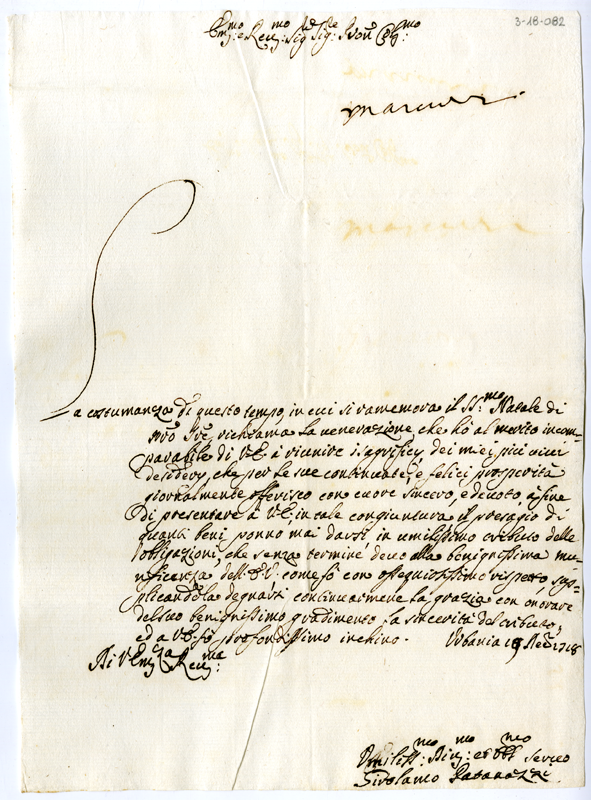 3-18-082
Em:mo e Reu:mo Sig:r Sig:re Pron Col:mo
La costumanza di questo tempo, in cui si ramemora il SS:mo Natale di
nro Sre, richiama la venerazione che hò al merito incom-
parabile di V.E. à riunire i sagrificij dei miei più vivi
desiderij, che per le sue continuate, e felici prosperità
giornalmente offerisco con cuore sincero, e devoto, à fine
di presentare à V.E., in tale congiuntura il presagio di
quanti beni ponno mai darsi in umilissimo tributo delle
obligazioni, che senza termine devo alla benignissima mu-
nificenza dell'E.V. come fò con ossequiosissimo rispetto, sup-
plicandola degnarsi continuarmene la grazia con onorare
del suo benignissimo gradimento la sincerità del tributo;
ed a V.E. fò profondissimo inchino. Urbania 19 Dec: 1718
Di V. Em:za Reu:ma
Umiliss:mo Div:mo et Obb:mo Serv:e
Girolamo